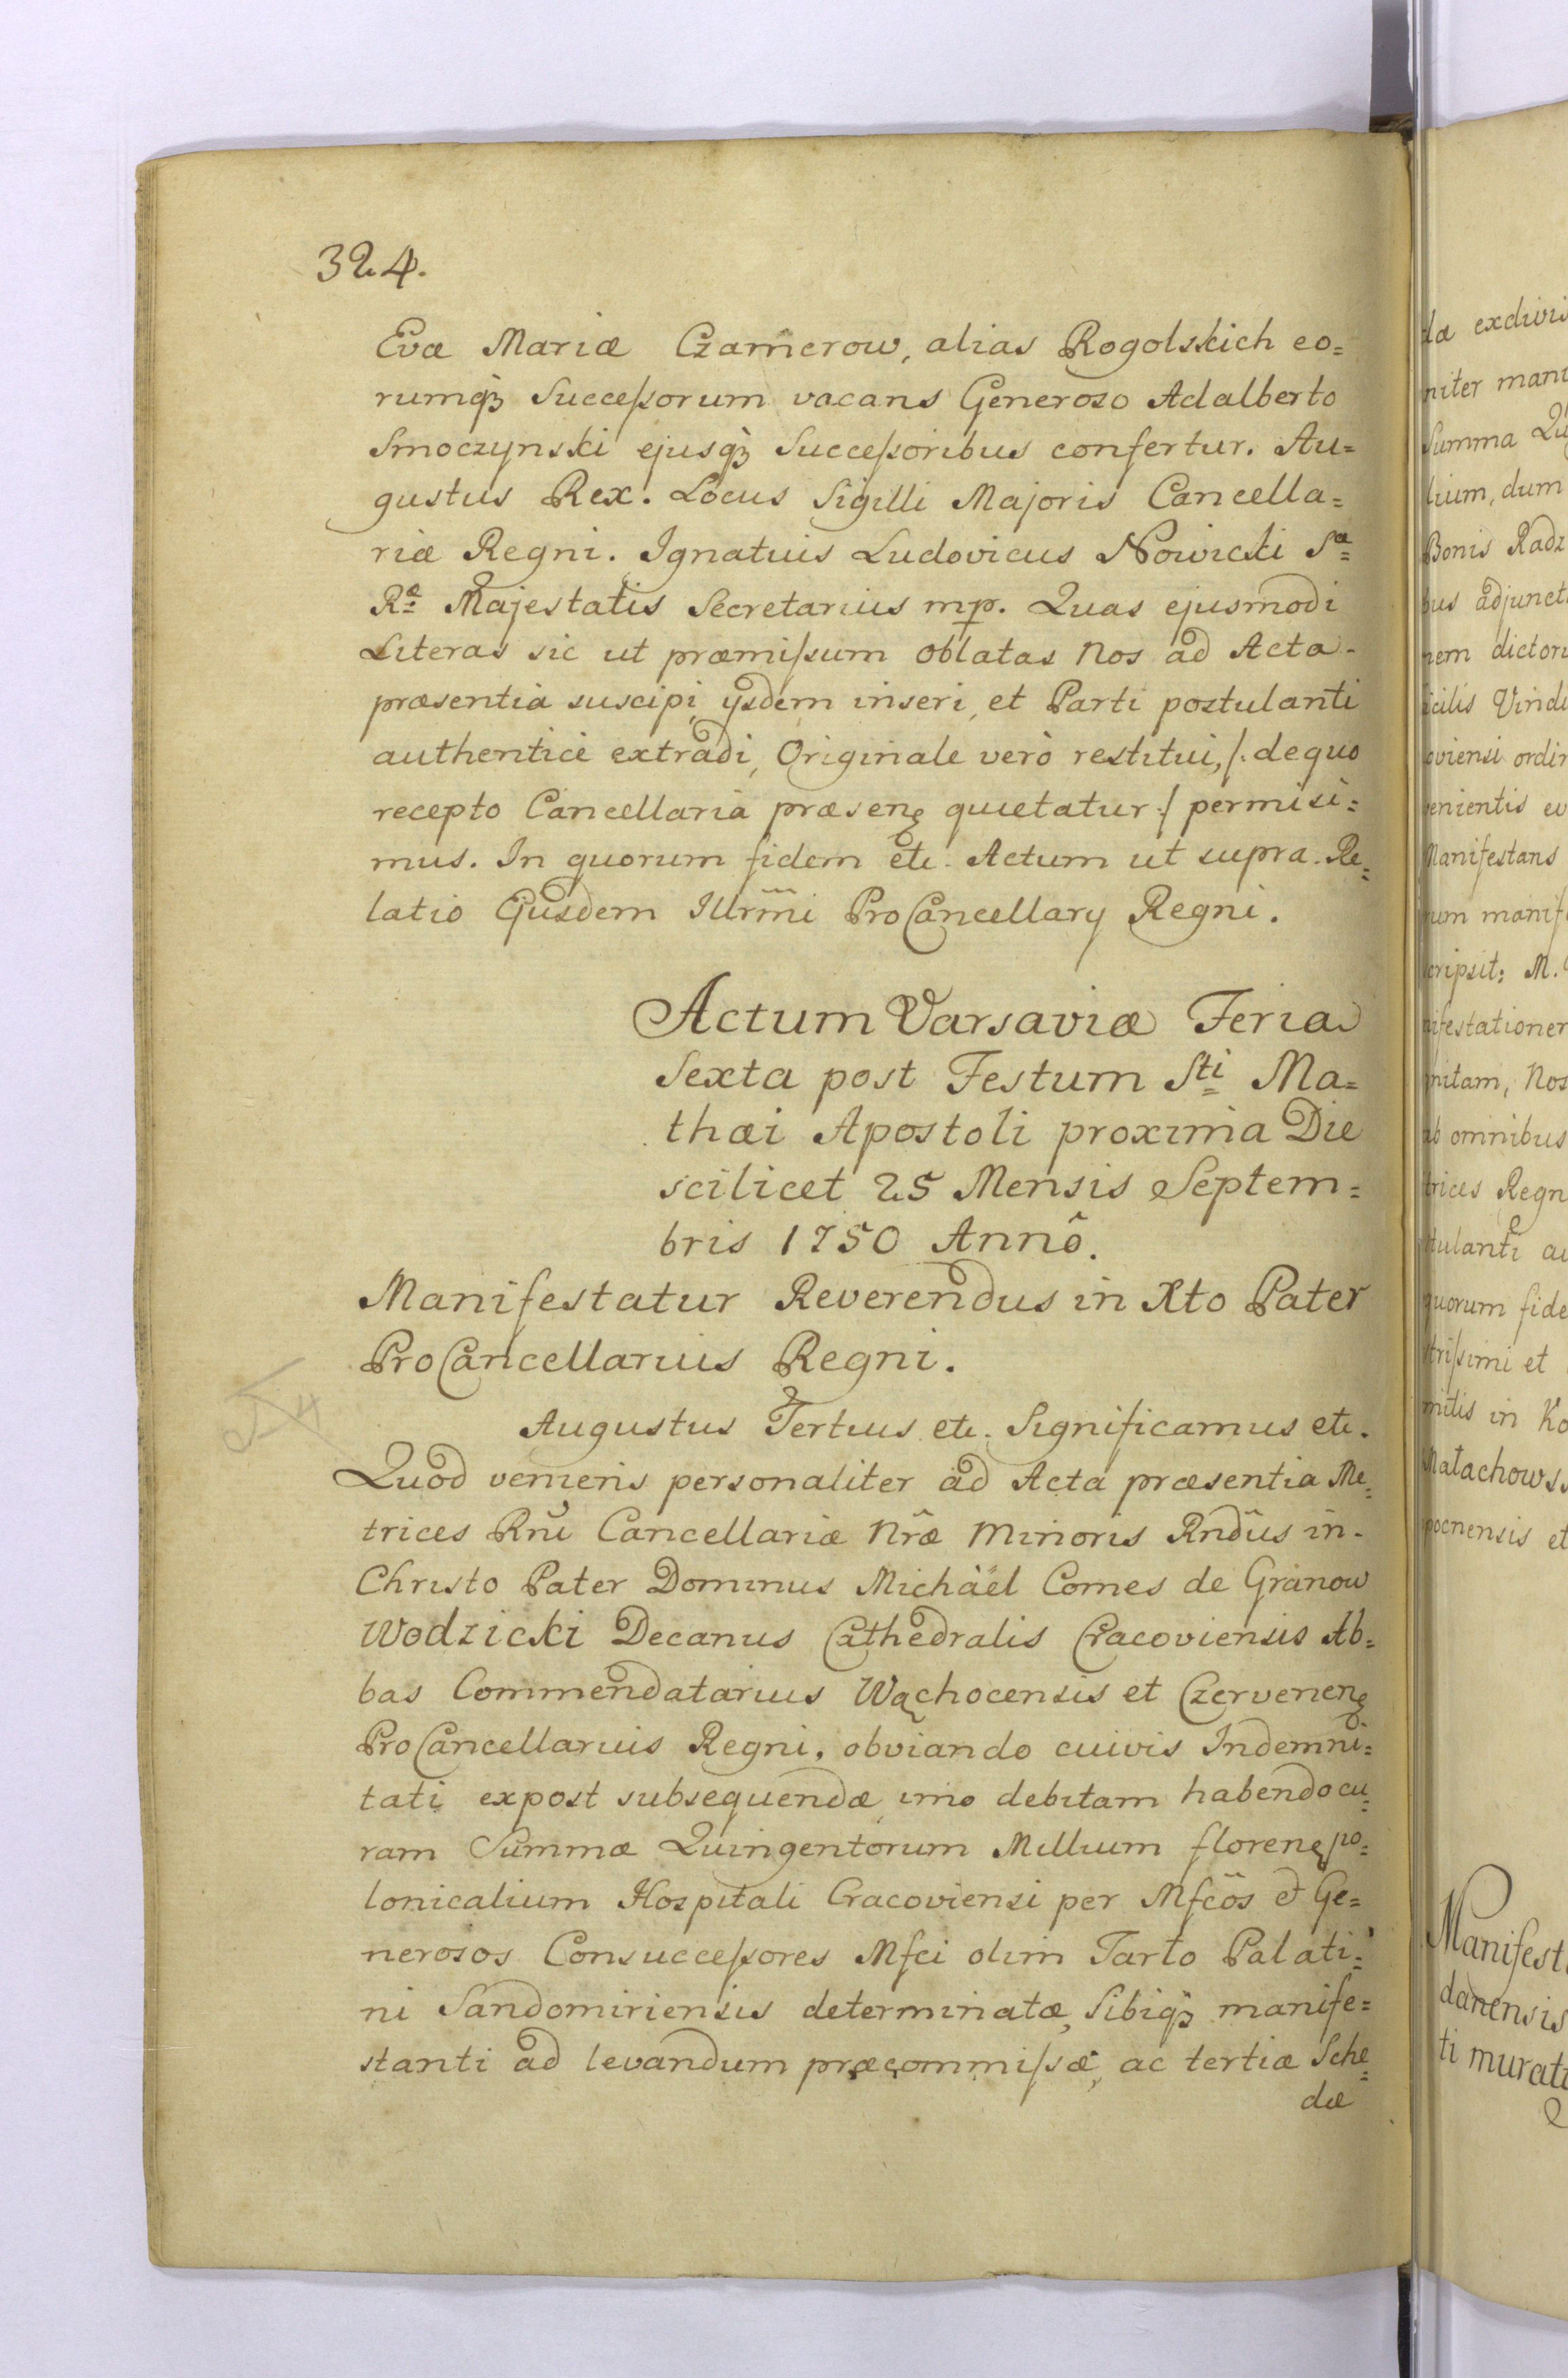 324.
Evæ Mariæ Czamerow, alias Rogolskich eo=
rumqꝫ Succeſsorum vacans Generoso Adalberto
Smoczynski ejusqꝫ Succeſsoribus confertur. Au=
gustus Rex. Locus Sigilli Majoris Cancella=
riæ Regni. Ignatius Ludovicus Nowicki Sæ
Ræ Majestatis Secretarius mp. Quas ejusmodi
Literas sic ut præmiſsum oblatas Nos ad Acta
præsentia suscipi, ysdem inseri, et Parti postulanti
authenticè extradi, Originale verò restitui, /: de quo
recepto Cancellaria præsenꝫ quietatur :/ permisi=
mus. In quorum fidem etc. Actum ut supra. Re=
latio Ejusdem Illrm̃i ProCancellary Regni.
Actum Varsaviæ Feria
Sexta post Festum Sti Ma=
thæi Apostoli proxima Die
scilicet 25 Mensis Septem=
bris 1750 Annô.
Manifestatur Reverendus in Xto Pater
ProCancellarius Regni.
Augustus Tertius etc. Significamus etc.
Quod veniens personaliter ad Acta præsentia Me=
trices Rñi Cancellariæ Nr̃æ Minoris Rndus in
Christo Pater Dominus Michäel Comes de Granow
Wodzicki Decanus Cathedralis Cracoviensis Ab=
bas Commendatarius Wąchocensis et Czervenenꝫ
ProCancellarius Regni, obviando cuivis Indemni=
tati expost subsequendæ imo debitam habendo cu=
ram Summæ Quingentorum Millium florenꝫ po=
lonicalium Hospitali Cracoviensi per Mfcos et Ge=
nerosos Consucceſsores Mfci olim Tarło Palati=
ni Sandomiriensis determinatæ, Sibiqꝫ manife=
stanti ad levandum præcommiſsæ, ac tertiæ Sche=
dæ
dæ exdivis
niter mani
Summa Qu
lium, dum
Bonis Radz
bus adjunct
nem dictor
cilis Vindi
oviensi ordin
venientis ev
Manifestans
um manif
cripsit: M.
nifestationem
nitam, Nos
ab omnibus
trices Regn
tulanti au
quorum fide
triſsimi et
mitis in Ko
Małachows
pocnensis et
Manifest
danensis
ti murat